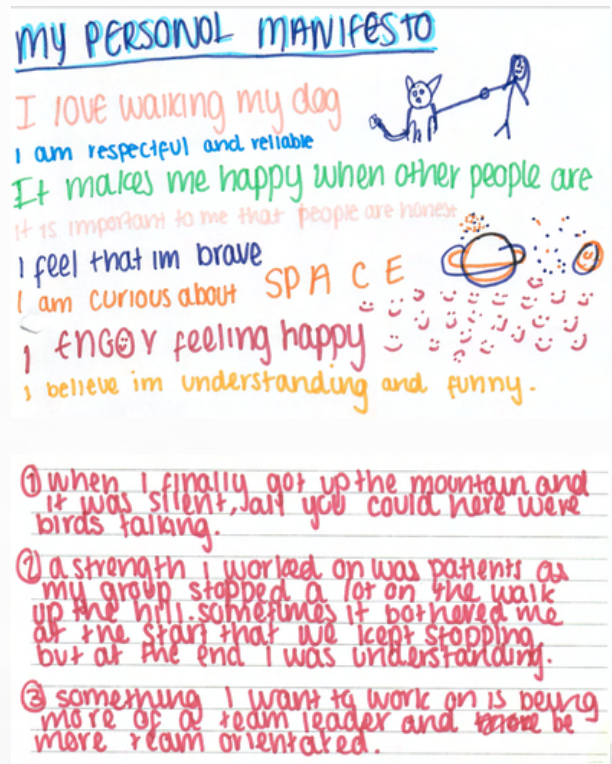 MY PERSONOL MANIFESTO
I love walking my dog
I am respectful and reliable
It makes me happy when other people are
it is important to me that people are honest
I feel that im brave
I am curious about SPACE
I ENGOY feeling happy
I believe im understanding and funny.
① when I finally got up the mountain and
it was silent, all you could here were
birds talking.
② a strength i worked on was patients as
my group stopped a lot on the walk
up the hill. sometimes it bothered me
at the start that we kept stopping
but at the end i was understanding.
③ something I want to work on is being
more of a team leader and be
more team orientated.